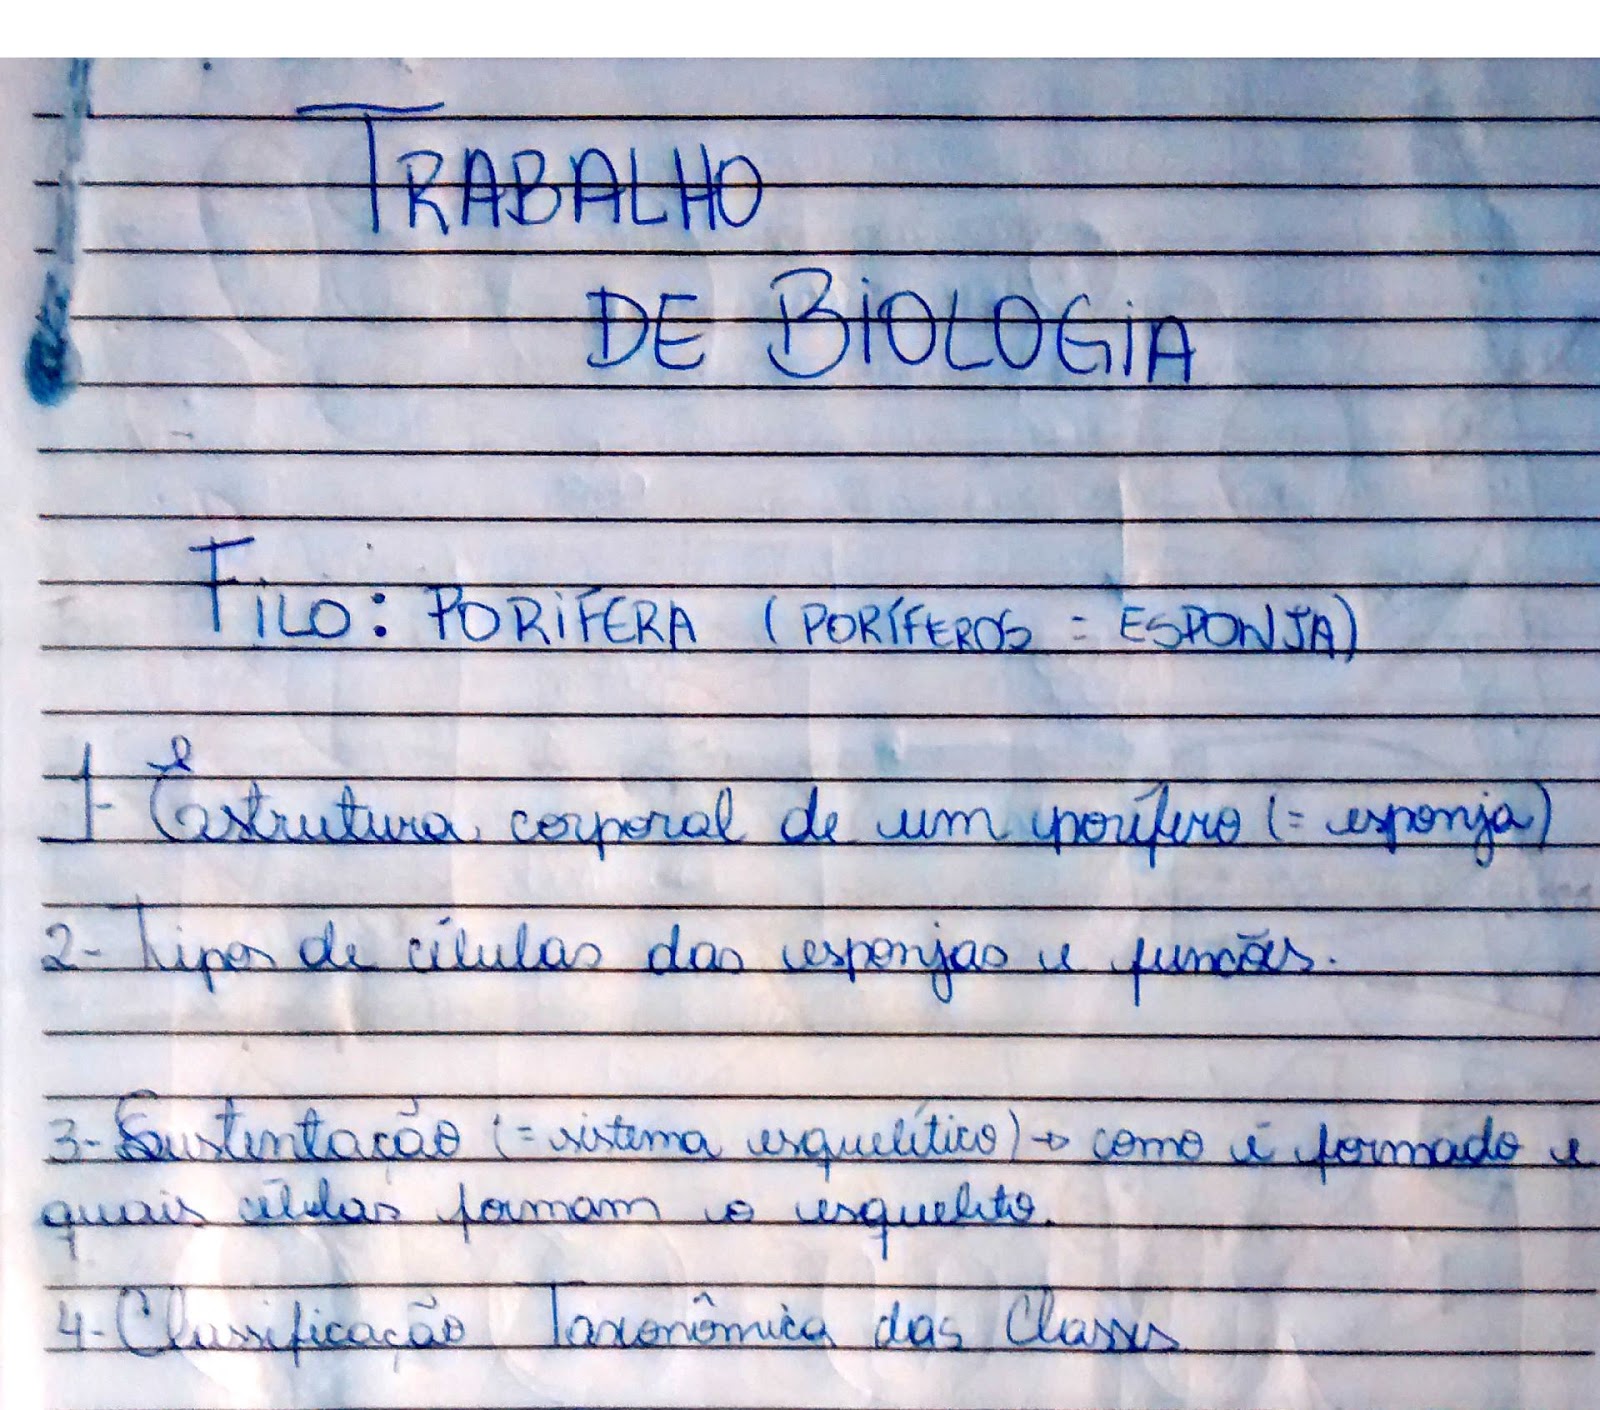 TRABALHO
DE BIOLOGIA
FILO: PORÍFERA (PORÍFEROS = ESPONJA)
1- Estrutura corporal de um porífero (= esponja)
2- Tipos de células das esponjas e funcões.
3- Sustentação (= sistema esquelético) → como é formado e
quais células formam o esqueleto.
4- Classificação Taxonômica das Classes